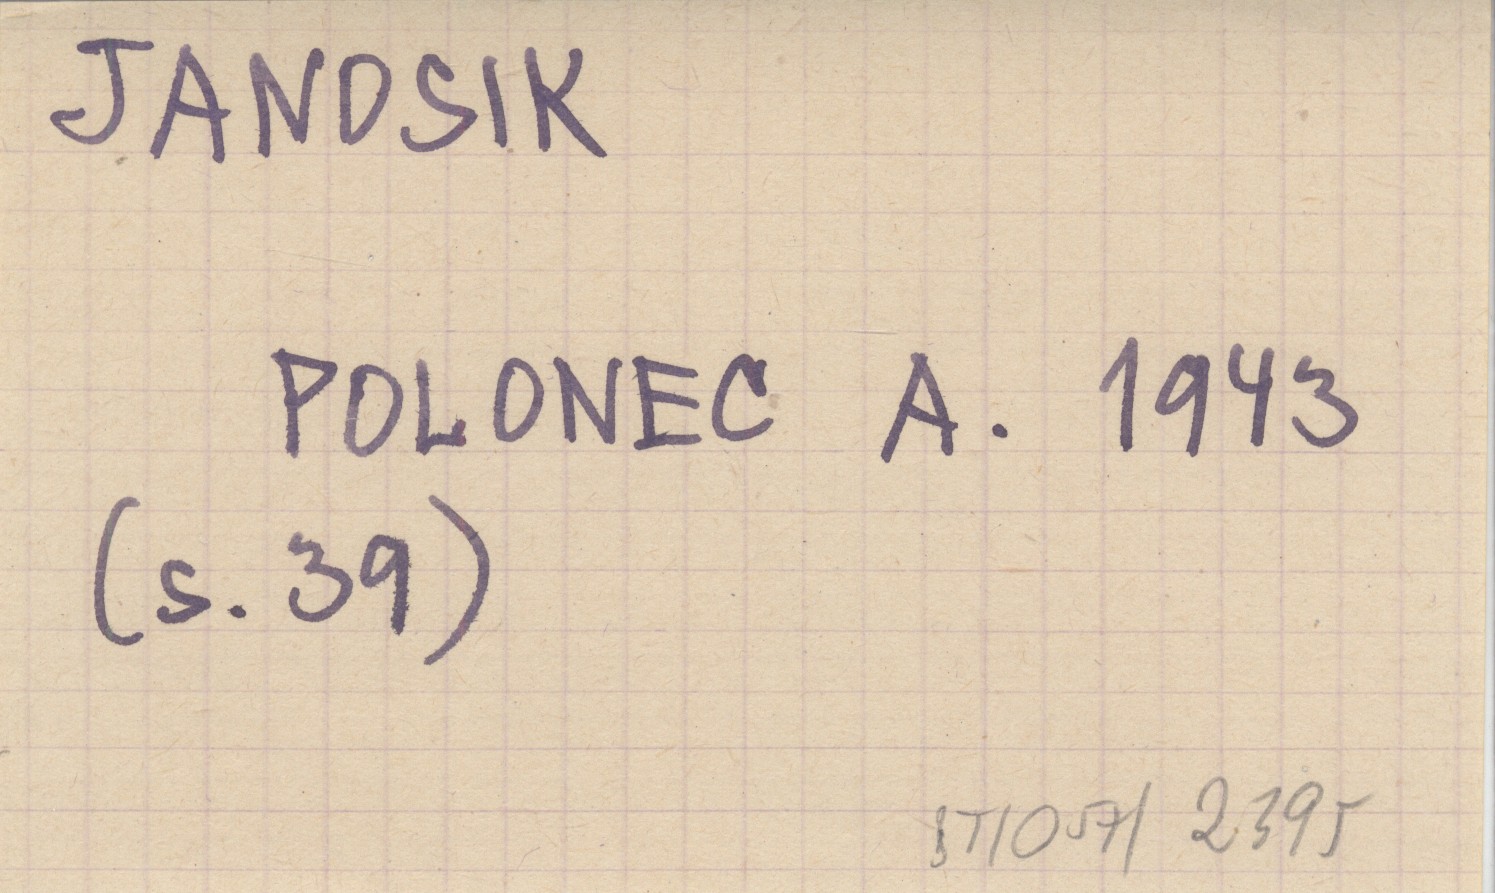 JANOSIK
POLONEC A. 1943
(s. 39)
2395